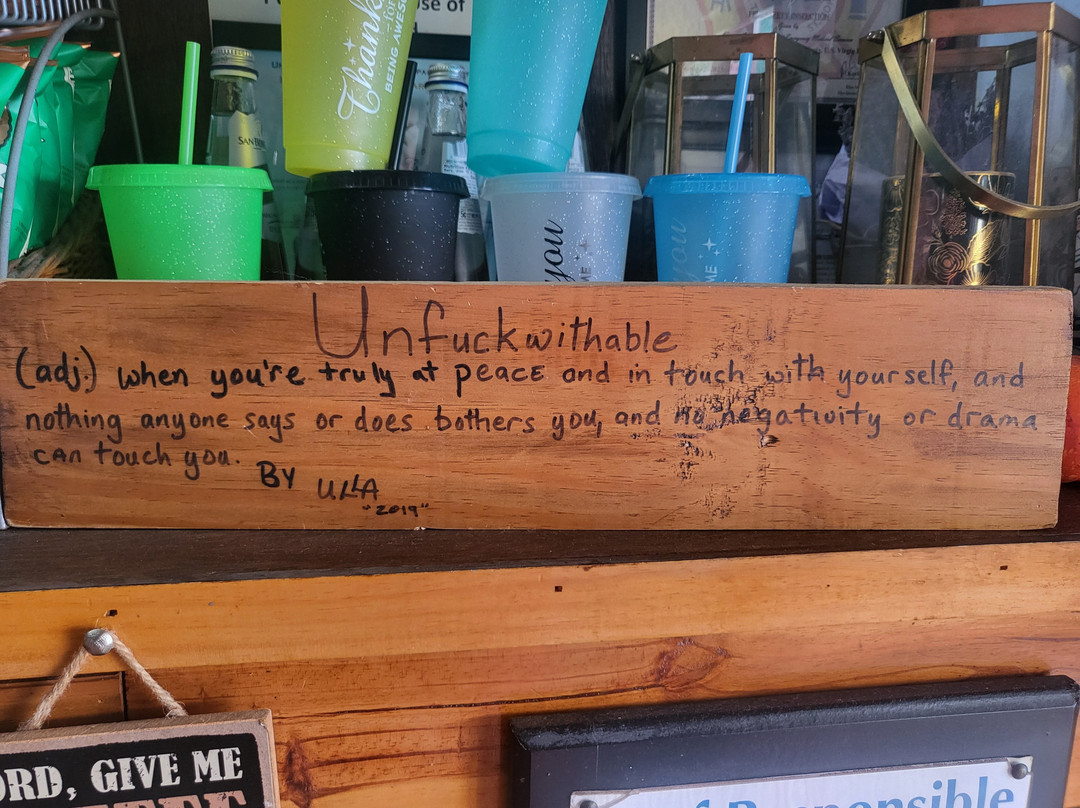 use of
Thank
for
BEING AWESOME
SAN BENE
you
ME
you
ME
Unfuckwithable
(adj.) when you're truly at peace and in touch with yourself, and
nothing anyone says or does bothers you, and no negativity or drama
can touch you.
BY ULLA
"2019"
ORD, GIVE ME
Responsible